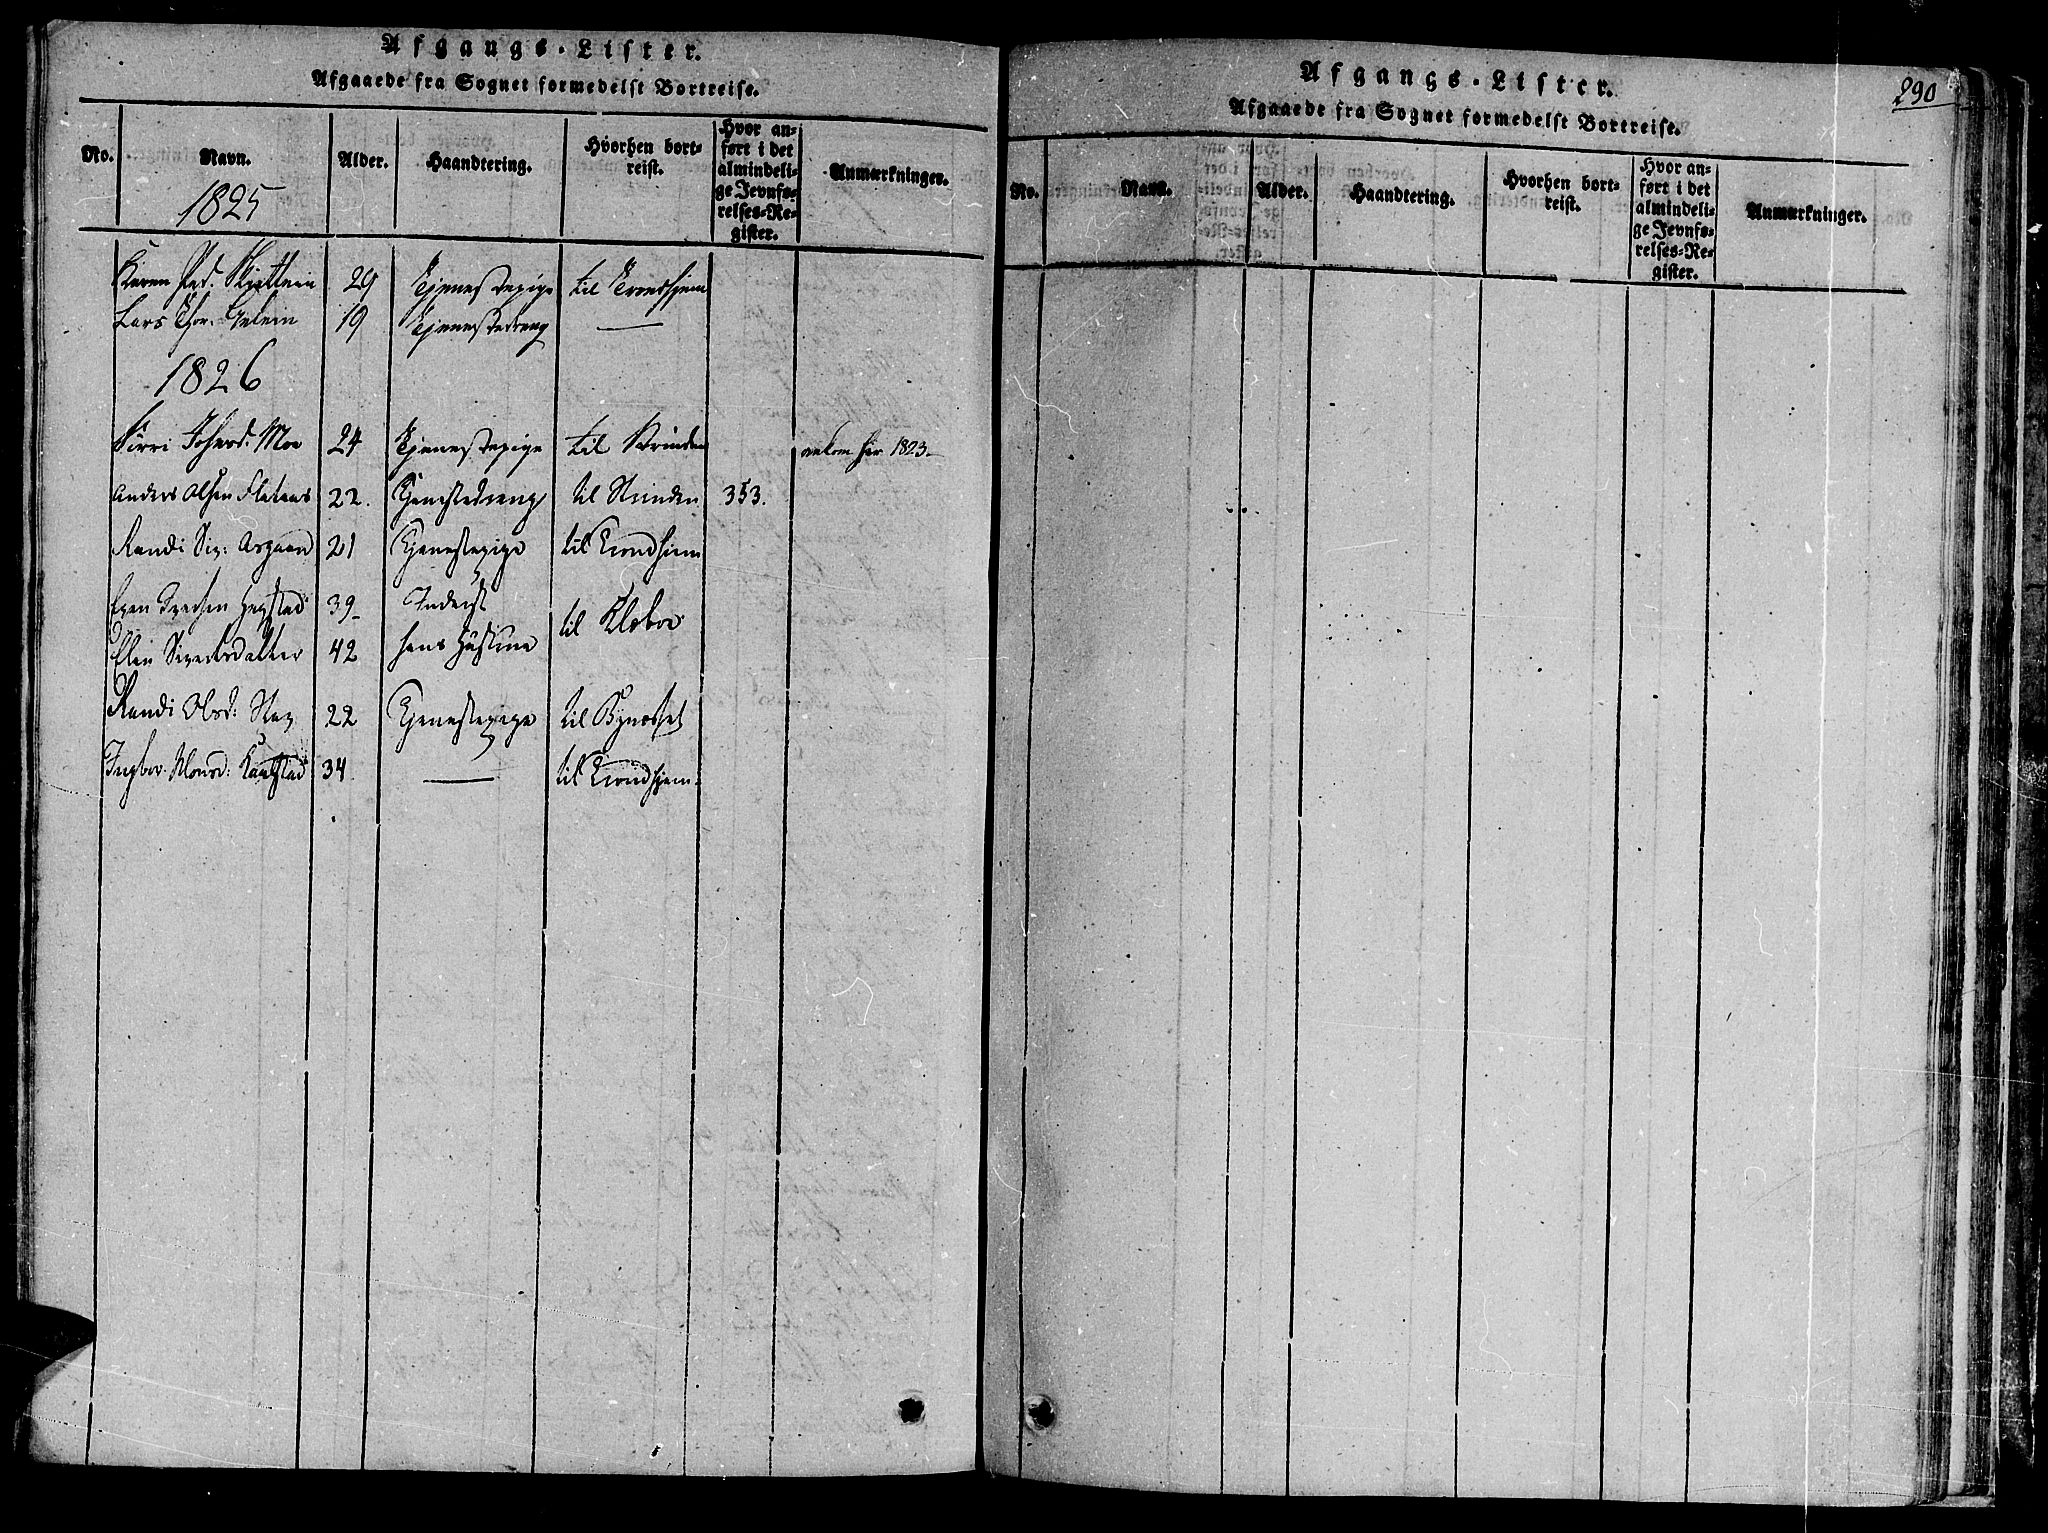 Afgangs-Lister.
Afgaaede fra Sognet formedelst Bortreise.
No. Navn. Alder. Haandtering. Hvorhen bortreist. Hvor anført i det almindelige Jevnførelses-Register. Anmærkninger.
1825
Karen 29 Tjenestepige til Trondhjem
Lars Thor. 19 Tjenestedreng —
1826
Sirri Johnsd. Moe 24 Tjenestepige til Strinden ankom hir 1823.
Anders Olsen Flataas 22. Tjenestedreng til Strinden 353.
Randi Siv: 21 Tjenestepige til Trondhiem
39 Inderst til Klæboe
Elen Sivertsdatter 42 hans Hustrue
Randi Olsd: 22 Tjenestepige til Bynæsset
Ingbor. Monsd: 34 — til Trondhjem
Afgangs-Lister.
290
Afgaaede fra Sognet formedelst Bortreise.
No. Navn. Alder. Haandtering. Hvorhen bortreist. Hvor anført i det almindelige Jevnførelses-Register. Anmærkninger.